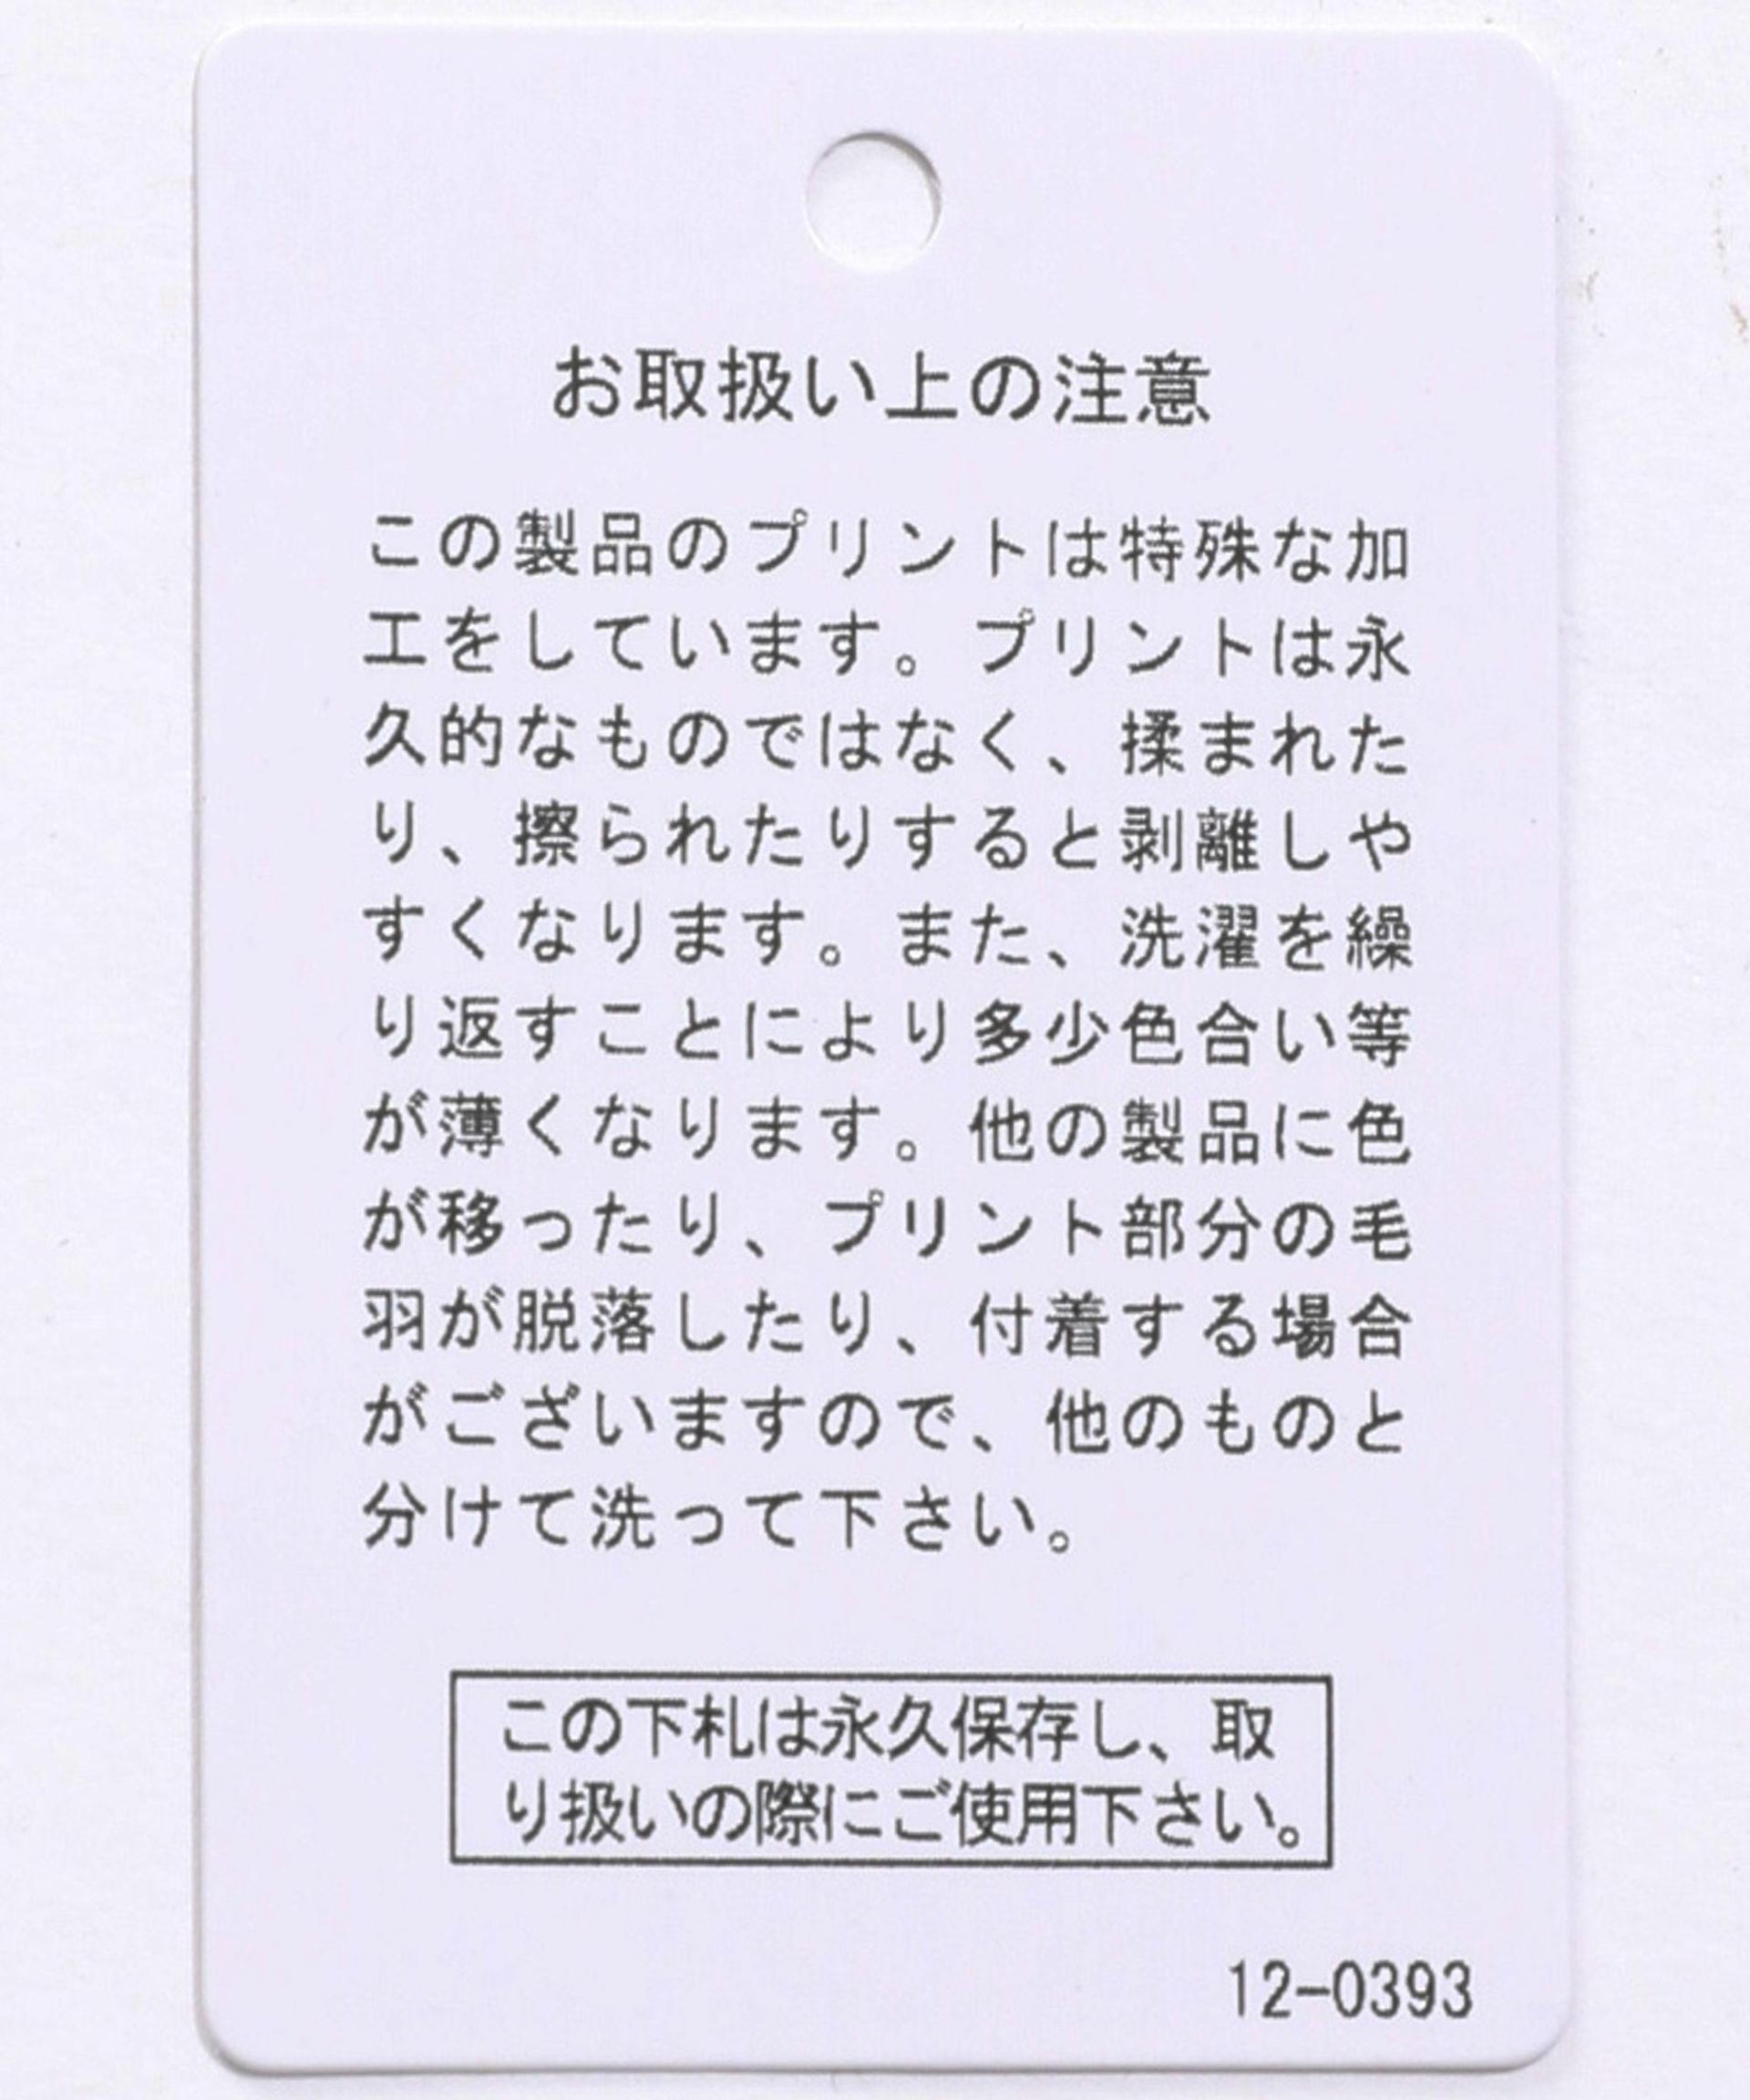 お取扱い上の注意
この製品のプリントは特殊な加
工をしています。プリントは永
久的なものではなく、揉まれた
り、擦られたりすると剥離しや
すくなります。また、洗濯を繰
り返すことにより多少色合い等
が薄くなります。他の製品に色
が移ったり、プリント部分の毛
羽が脱落したり、付着する場合
がございますので、他のものと
分けて洗って下さい。
この下札は永久保存し、取
り扱いの際にご使用下さい。
12-0393